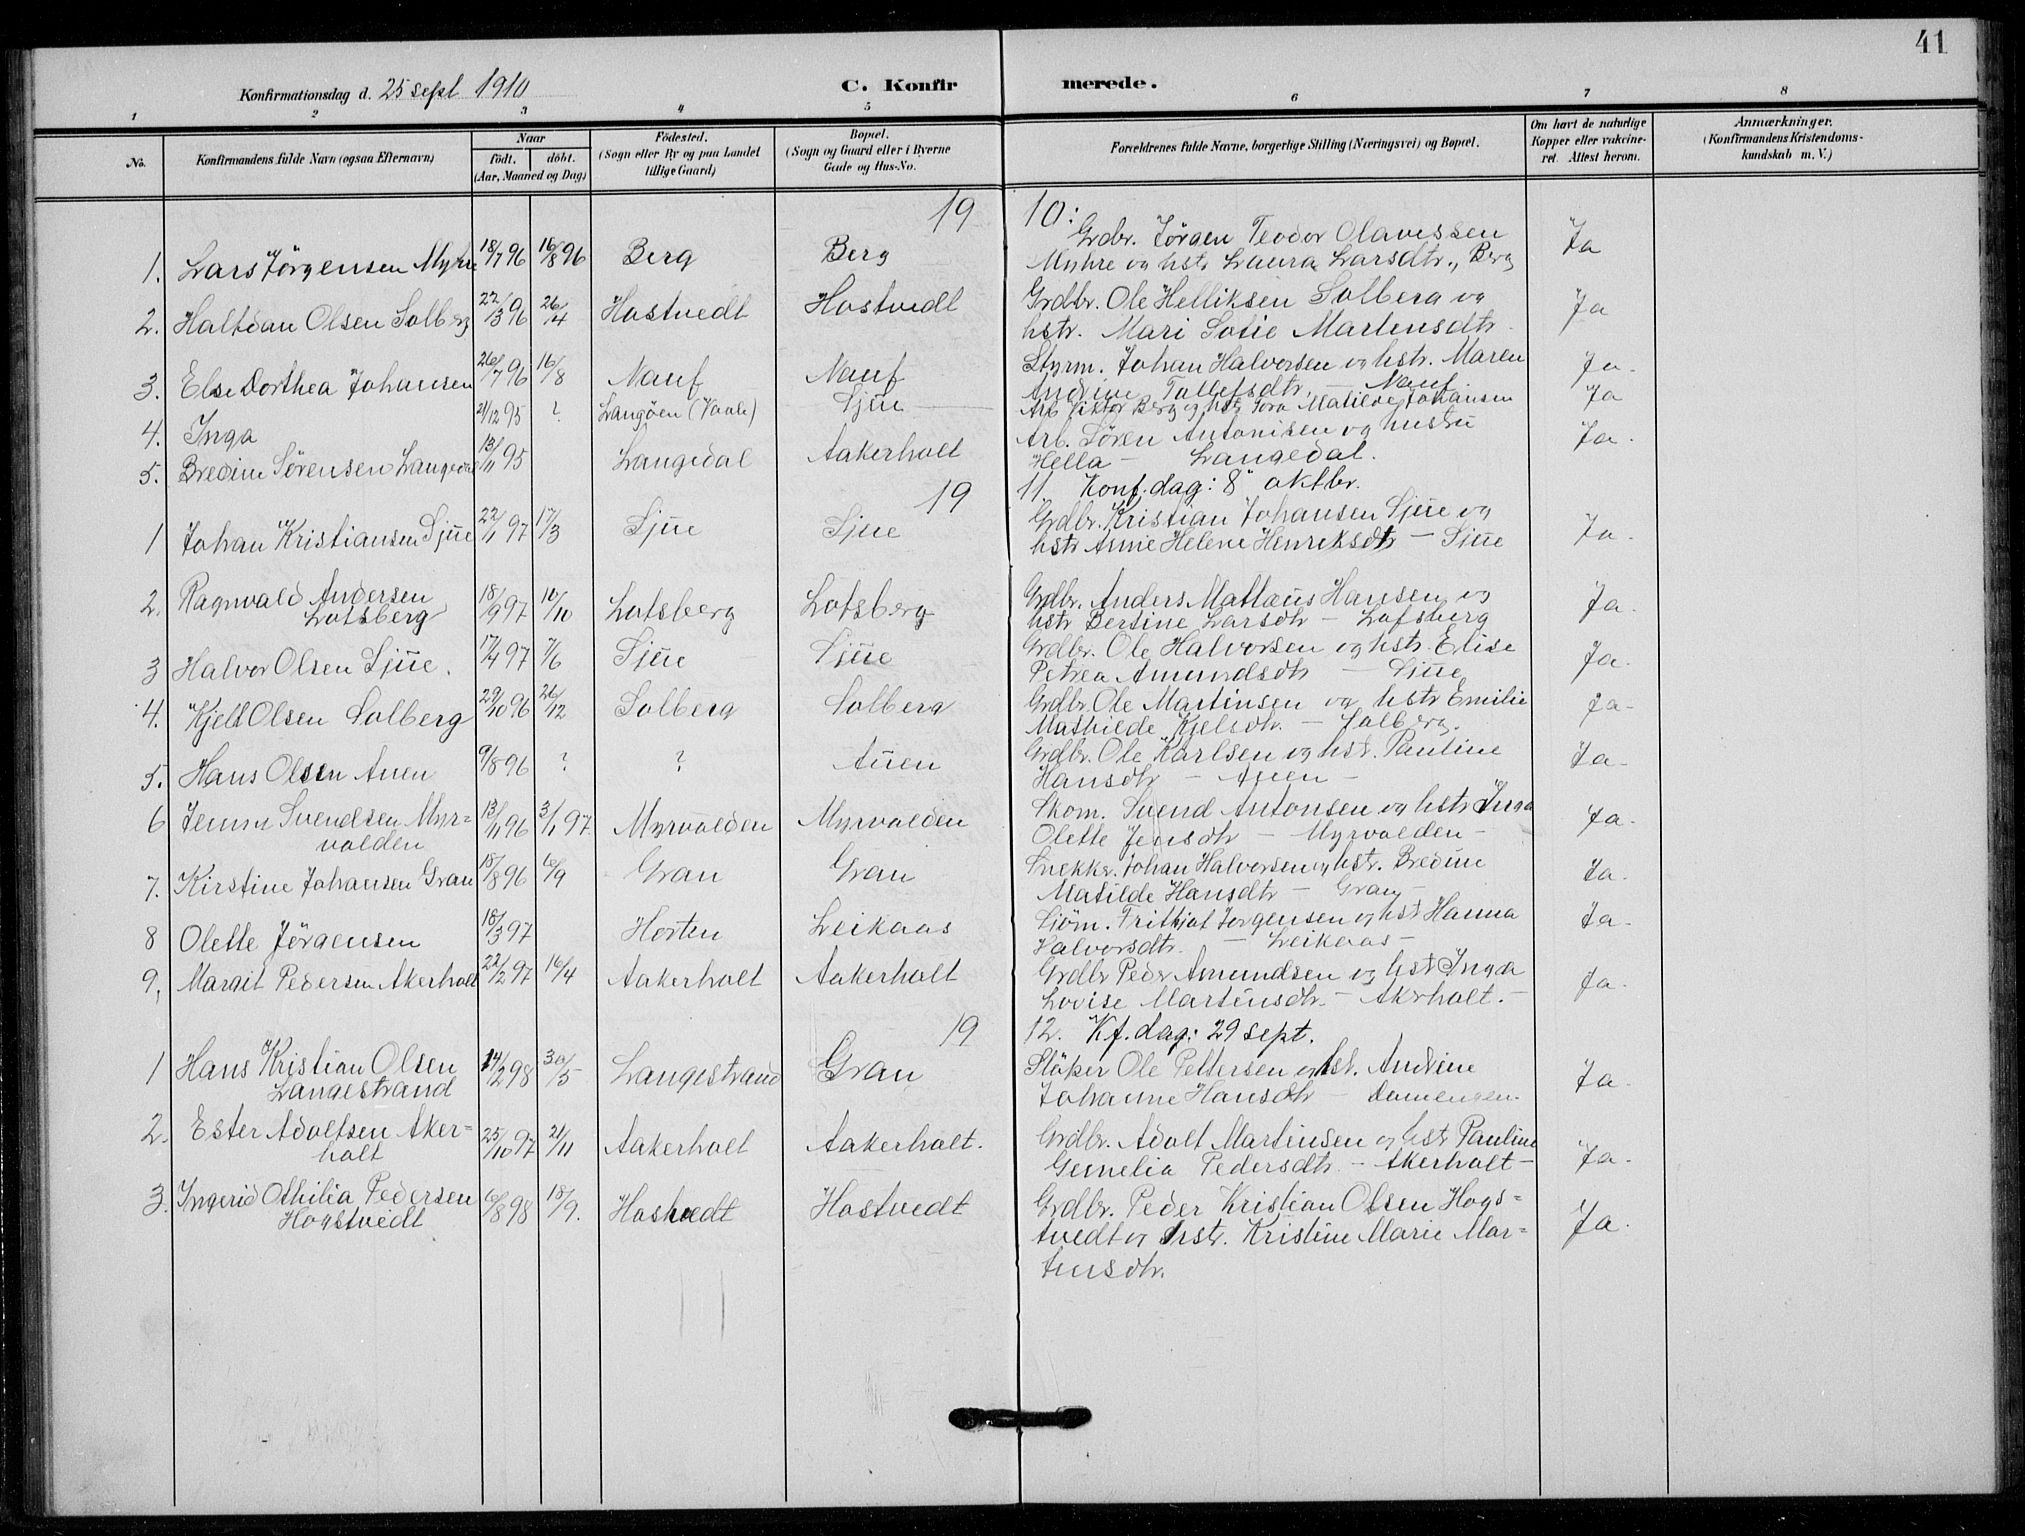 41
Konfirmationsdag d. 25 sept 1910
C. Konfirmerede.
1 2 3 4 5 6 7 8
No.
Konfirmandens fulde Navn (ogsaa Efternavn)
Naar
født. døbt.
(Aar, Maaned og Dag)
Fødested.
(Sogn eller By og paa Landet
tillige Gaard)
Bopæl.
(Sogn og Gaard eller i Byerne
Gade og Hus-No.
Forældrenes fulde Navne, borgerlige Stilling (Næringsvei) og Bopæl.
Om havt de naturlige
Kopper eller vakcine-
ret. Attest herom.
Anmærkninger.
(Konfirmandens Kristendoms-
kundskab m. V.)
1910:
1. Lars Jörgensen Myhre 18/7 96 16/8 96 Berg Berg Grdbr. Jörgen Teodor Olavessen Ja
Myhre og hstr Laura Larsdtr., Berg
2. Halfdan Olsen Solberg 22/3 96 26/4 Hostvedt Hostvedt Grdbr. Ole Helliksen Solberg og Ja
hstr. Mari Sofie Martensdtr.
3. Else Dorthea Johansen 26/7 96 16/8 Nauf Nauf Styrm. Johan Halvorsen og hstr. Maren Ja.
Andrine Tollefsdtr. — Nauf
4. Inga 21/12 95 ? Langöen (Vaale) Sjue Arb. Viktor Berg og hstr Tora Matilde Johansen Ja
5. Bredine Sörensen Langedal 13/11 95 Langedal Aakerholt Arb. Sören Antonisen og hustru Ja.
Hella — Langedal.
1911. Konf.dag: 8 oktbr.
1 Johan Kristiansen Sjue 22/1 97 17/3 Sjue Sjue Grdbr. Kristian Johansen Sjue og Ja.
hstr Anne Helene Henriksdtr — Sjue
2. Ragnvald Andersen
Lofsberg 18/9 97 10/10 Lofsberg Lofsberg Grdbr. Anders Mattæus Hansen og Ja.
hstr Bertine Larsdtr — Lofsberg
3 Halvor Olsen Sjue. 17/4 97 7/6 Sjue Sjue Grdbr. Ole Halvorsen og hstr. Elise Ja.
Petrea Amundsdtr — Sjue
4. Kjell Olsen Solberg 29/10 96 26/12 Solberg Solberg Grdbr. Ole Martinsen og hstr Emilie Ja-
Mathilde Kjelsdtr. — Solberg.
5. Hans Olsen Auen 9/8 96 ? ? Auen Grdbr. Ole Karlsen og hst. Pauline Ja-
Hansdtr — Auen —
6 Jenny Svendsen Myr-
volden 13/11 96 3/1 97. Myrvolden Myrvolden Skom. Svend Antonsen og hstr Inga Ja.
Olette Jensdtr — Myrvolden —
7. Kirstine Johansen Gran 18/8 96 6/9 Gran Gran Snekker. Johan Halvorsen og hstr. Bredine Ja.
Matilde Hansdtr — Gran —
8 Olette Jörgensen 18/3 97 Horten Leikaas Sjöm. Frithjof Jorgensen og hst Hanna Ja.
Halvorsdtr. — Leikaas —
9, Margit Pedersen Akerholt 22/2 97 16/4 Aakerholt Aakerholt Grdbr Peder Amundsen og hst Inga Ja.
Lovise Martinsdtr. — Akerholt. —
1912. Kf.dag: 29 sept.
1 Hans Kristian Olsen
Langestrand 14/2 98 30/5 Langestrand Gran Stöper Ole Pettersen og hst. Andrine Ja.
Johanne Hansdtr — Damengen.
2. Ester Adolfsen Aker-
holt 25/10 97 21/11 Aakerholt Aakerholt. Grdbr. Adolf Martinsen og hst Pauline Ja.
Pedersdtr. — Akerholt —
3. Ingerid Othilia Pedersen
Hogstvedt 6/8 98 18/9. Hostvedt Hostvedt Grdbr. Peder Kristian Olsen Hogs- Ja.
tvedt og hstr. Kristine Marie Mar-
tinsdtr.